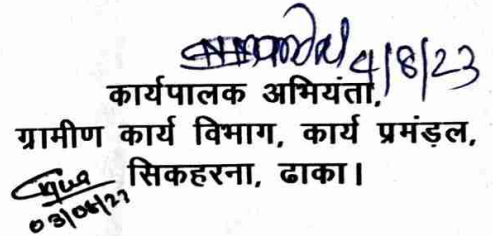 4/8/23
कार्यपालक अभियंता,
ग्रामीण कार्य विभाग, कार्य प्रमंड़ल,
सिकहरना, ढाका।
03/08/23